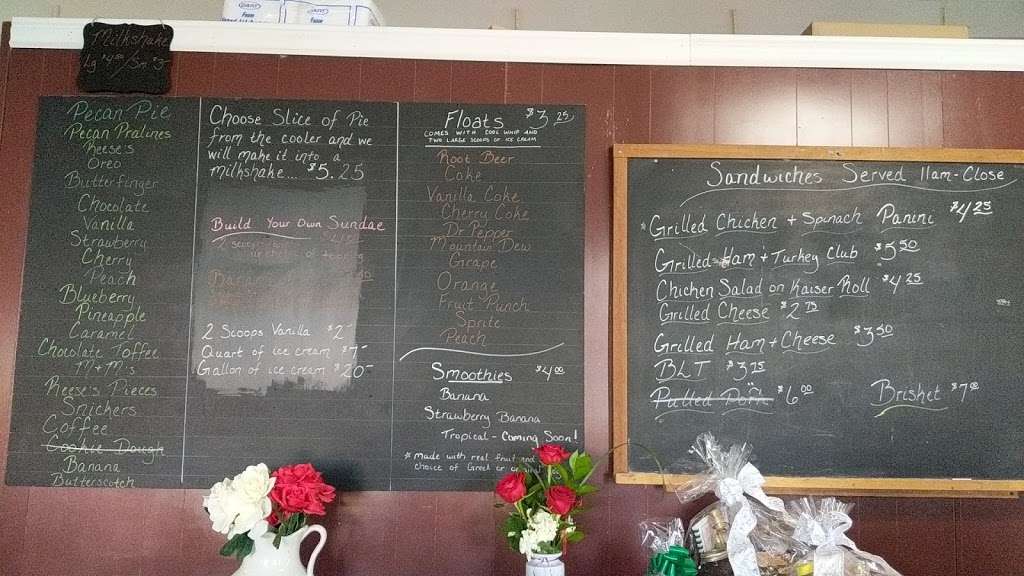 Milkshake
Lg $4.00/Sm $3
Pecan Pie
Pecan Pralines
Reese's
Oreo
Butterfinger
Chocolate
Vanilla
Strawberry
Cherry
Peach
Blueberry
Pineapple
Caramel
Chocolate Toffee
M+M's
Reese's Pieces
Snickers
Coffee
Cookie Dough
Banana
Butterscotch
Choose Slice of Pie
from the cooler and we
will make it into a
milkshake... $5.25
Build Your Own Sundae
2 Scoops Vanilla $2-
Quart of ice cream $7-
Gallon of ice cream $20-
Floats $3.25
COMES WITH COOL WHIP AND
TWO LARGE SCOOPS OF ICE CREAM
Root Beer
Coke
Vanilla Coke
Cherry Coke
Dr Pepper
Mountain Dew
Grape
Orange
Fruit Punch
Sprite
Peach
Smoothies $4.00
Banana
Strawberry Banana
Tropical - Coming Soon!
* made with real fruit and
choice of Greek or
Sandwiches Served 11am-Close
* Grilled Chicken + Spinach Panini $4.25
Grilled Ham + Turkey Club $5.50
Chicken Salad on Kaiser Roll $4.25
Grilled Cheese $2.75
Grilled Ham + Cheese $3.50
BLT $3.75
Pulled Pork $6.00
Brisket $7.00